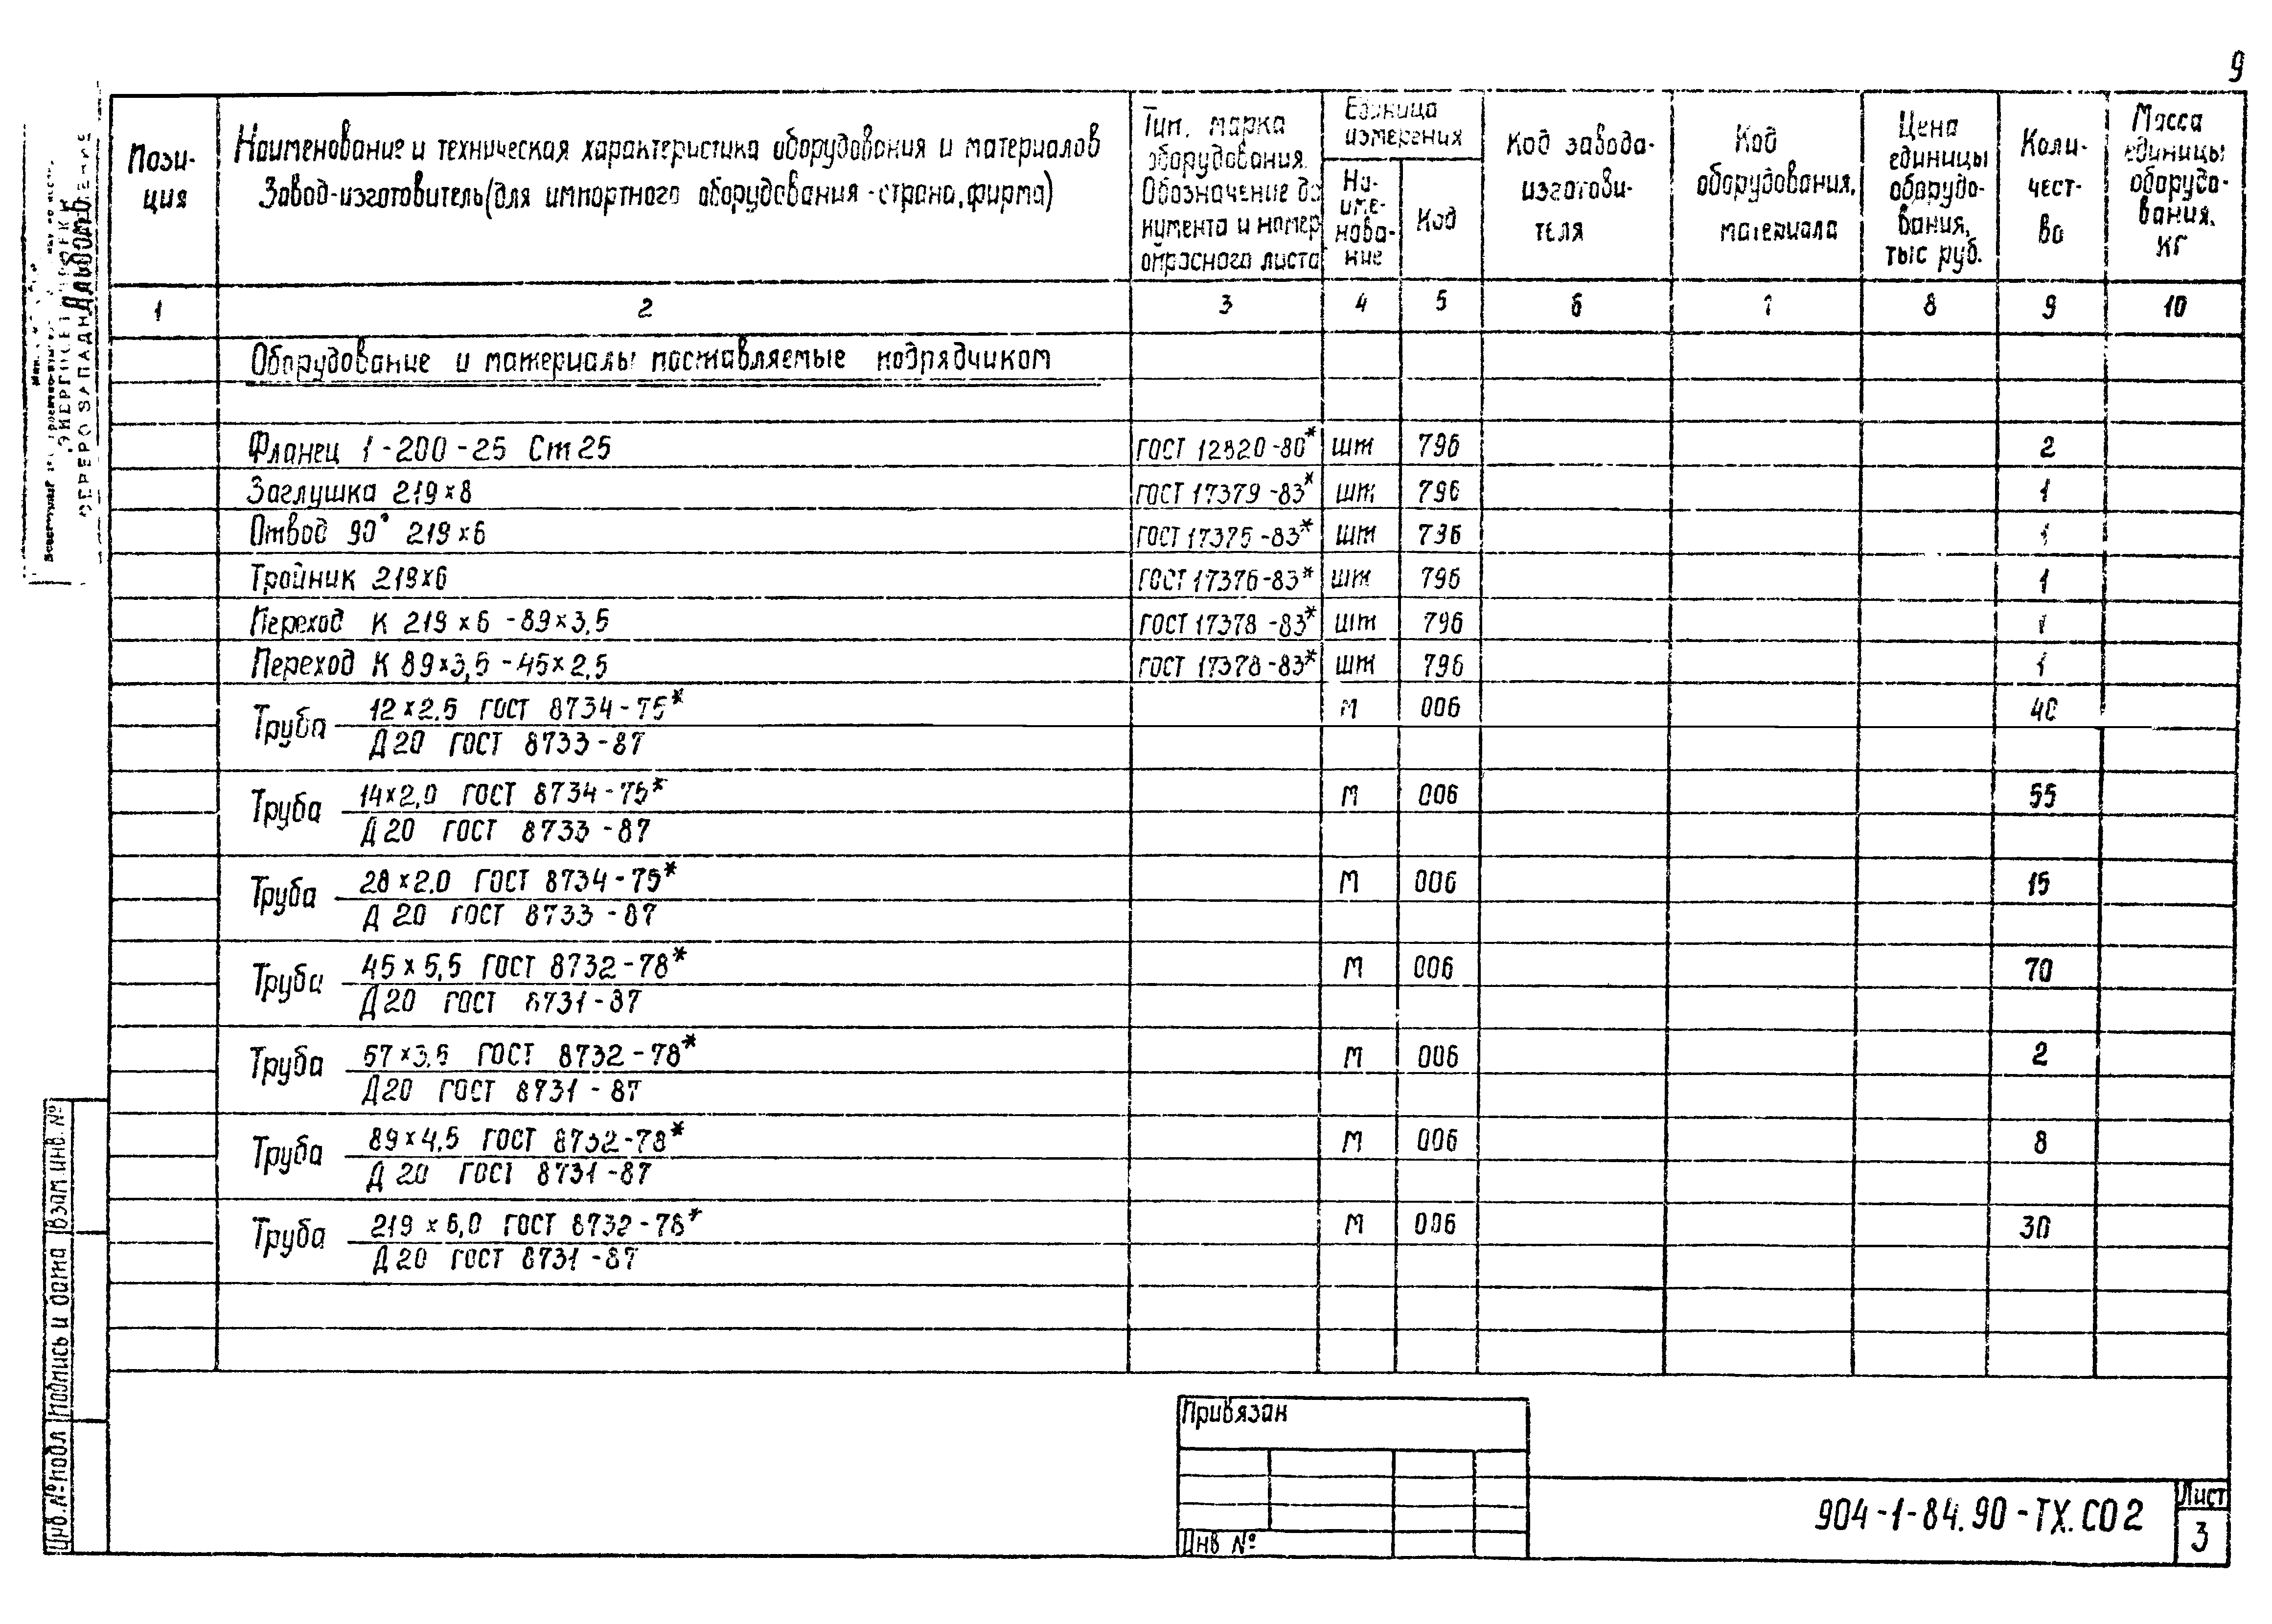 9
Пози-
ция
Наименование и техническая характеристика оборудования и материалов
Завод-изготовитель (для импортного оборудования - страна, фирма)
Тип, марка
оборудования.
Обозначение до
кумента и номер
опросного листа
Единица
измерения
На-
име-
нова-
ние
Код
Код завода-
изготови-
теля
Код
оборудования,
материала
Цена
единицы
оборудо-
вания,
тыс руб.
Коли-
чест-
во
Масса
единицы
оборудо-
вания,
кг
1 2 3 4 5 6 7 8 9 10
Оборудование и материалы поставляемые подрядчиком
Фланец 1-200-25 Ст 25 ГОСТ 12820-80* шт 796 2
Заглушка 219×8 ГОСТ 17379-83* шт 796 1
Отвод 90° 219×6 ГОСТ 17375-83* шт 796 1
Тройник 219×6 ГОСТ 17376-83* шт 796 1
Переход К 219×6-89×3,5 ГОСТ 17378-83* шт 796 1
Переход К 89×3,5-45×2,5 ГОСТ 17378-83* шт 796 1
Труба 12×2,5 ГОСТ 8734-75* м 006 40
Д20 ГОСТ 8733-87
Труба 14×2,0 ГОСТ 8734-75* м 006 55
Д20 ГОСТ 8733-87
Труба 28×2,0 ГОСТ 8734-75* м 006 15
Д20 ГОСТ 8733-87
Труба 45×5,5 ГОСТ 8732-78* м 006 70
Д20 ГОСТ 8731-87
Труба 57×3,5 ГОСТ 8732-78* м 006 2
Д20 ГОСТ 8731-87
Труба 89×4,5 ГОСТ 8732-78* м 006 8
Д20 ГОСТ 8731-87
Труба 219×6,0 ГОСТ 8732-78* м 006 30
Д20 ГОСТ 8731-87
Привязан
Инв №
904-1-84.90-ТХ.СО2
Лист
3
Инв. № подл
Подпись и дата
Взам. инв. №
Альбом 6